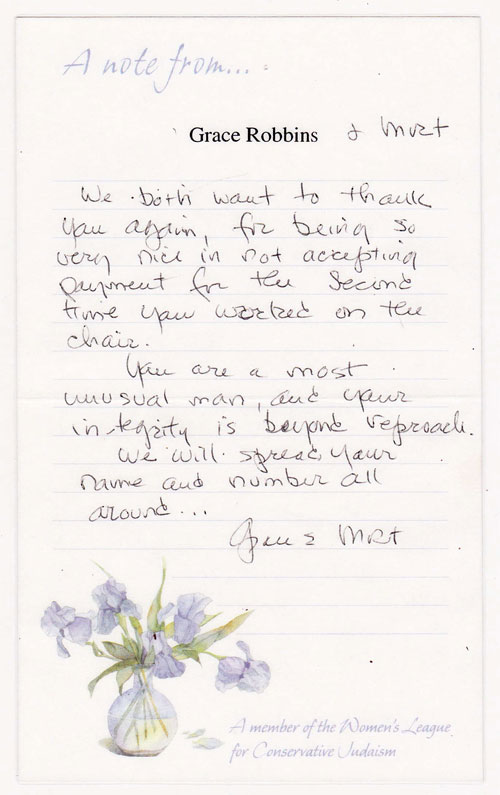 A note from...
Grace Robbins & Mort
We both want to thank
you again, for being so
very nice in not accepting
payment for the second
time you worked on the
chair.
You are a most
unusual man, and your
integrity is beyond reproach.
We will spread your
name and number all
around...
Grace & Mort
A member of the Women's League
for Conservative Judaism